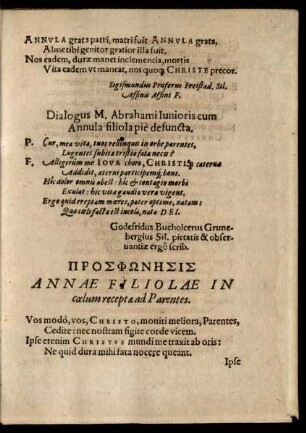 ANNVLA grata patri, matri fuit ANNVLA grata,
Alme tibi genitor gratior illa fuit.
Nos eadem, duræ manet inclementia, mortis
Vita eadem vt maneat, nos quoq; CHRISTE precor.
Sigismundus Pruferus Freistad. Sil.
Affinis Affini F.
Dialogus M. Abrahami Iunioris cum
Annula filiola piè defuncta.
P. Cur, mea vita, tuos relinquis in orbe parentes,
Lugentes subita tristia fata necis?
F. Allegerim me IOVA choro, CHRISTIq; caterua
Addidit, aterni participemq; boni.
Hic dolor omnis abest: hic & contagio morbi
Exulat: hic vita gaudia vera vigent,
Ergo quid ereptam mares, pater optime, natam:
Qua cœli facta est incola, nata DEI.
Godefridus Bucholcerus Grune-
bergius Sil. pietatis & obser-
uantiæ ergò scrib.
ΠΡΟΣΦΩΝΗΣΙΣ
ANNAE FILIOLAE IN
cœlum recepta ad Parentes.
Vos modò, vos, CHRISTO, moniti meliora, Parentes,
Cedite: nec nostram figite corde vicem.
Ipse etenim CHRISTVS mundi me traxit ab oris:
Ne quid dura mihi fata nocere queant.
Ipse